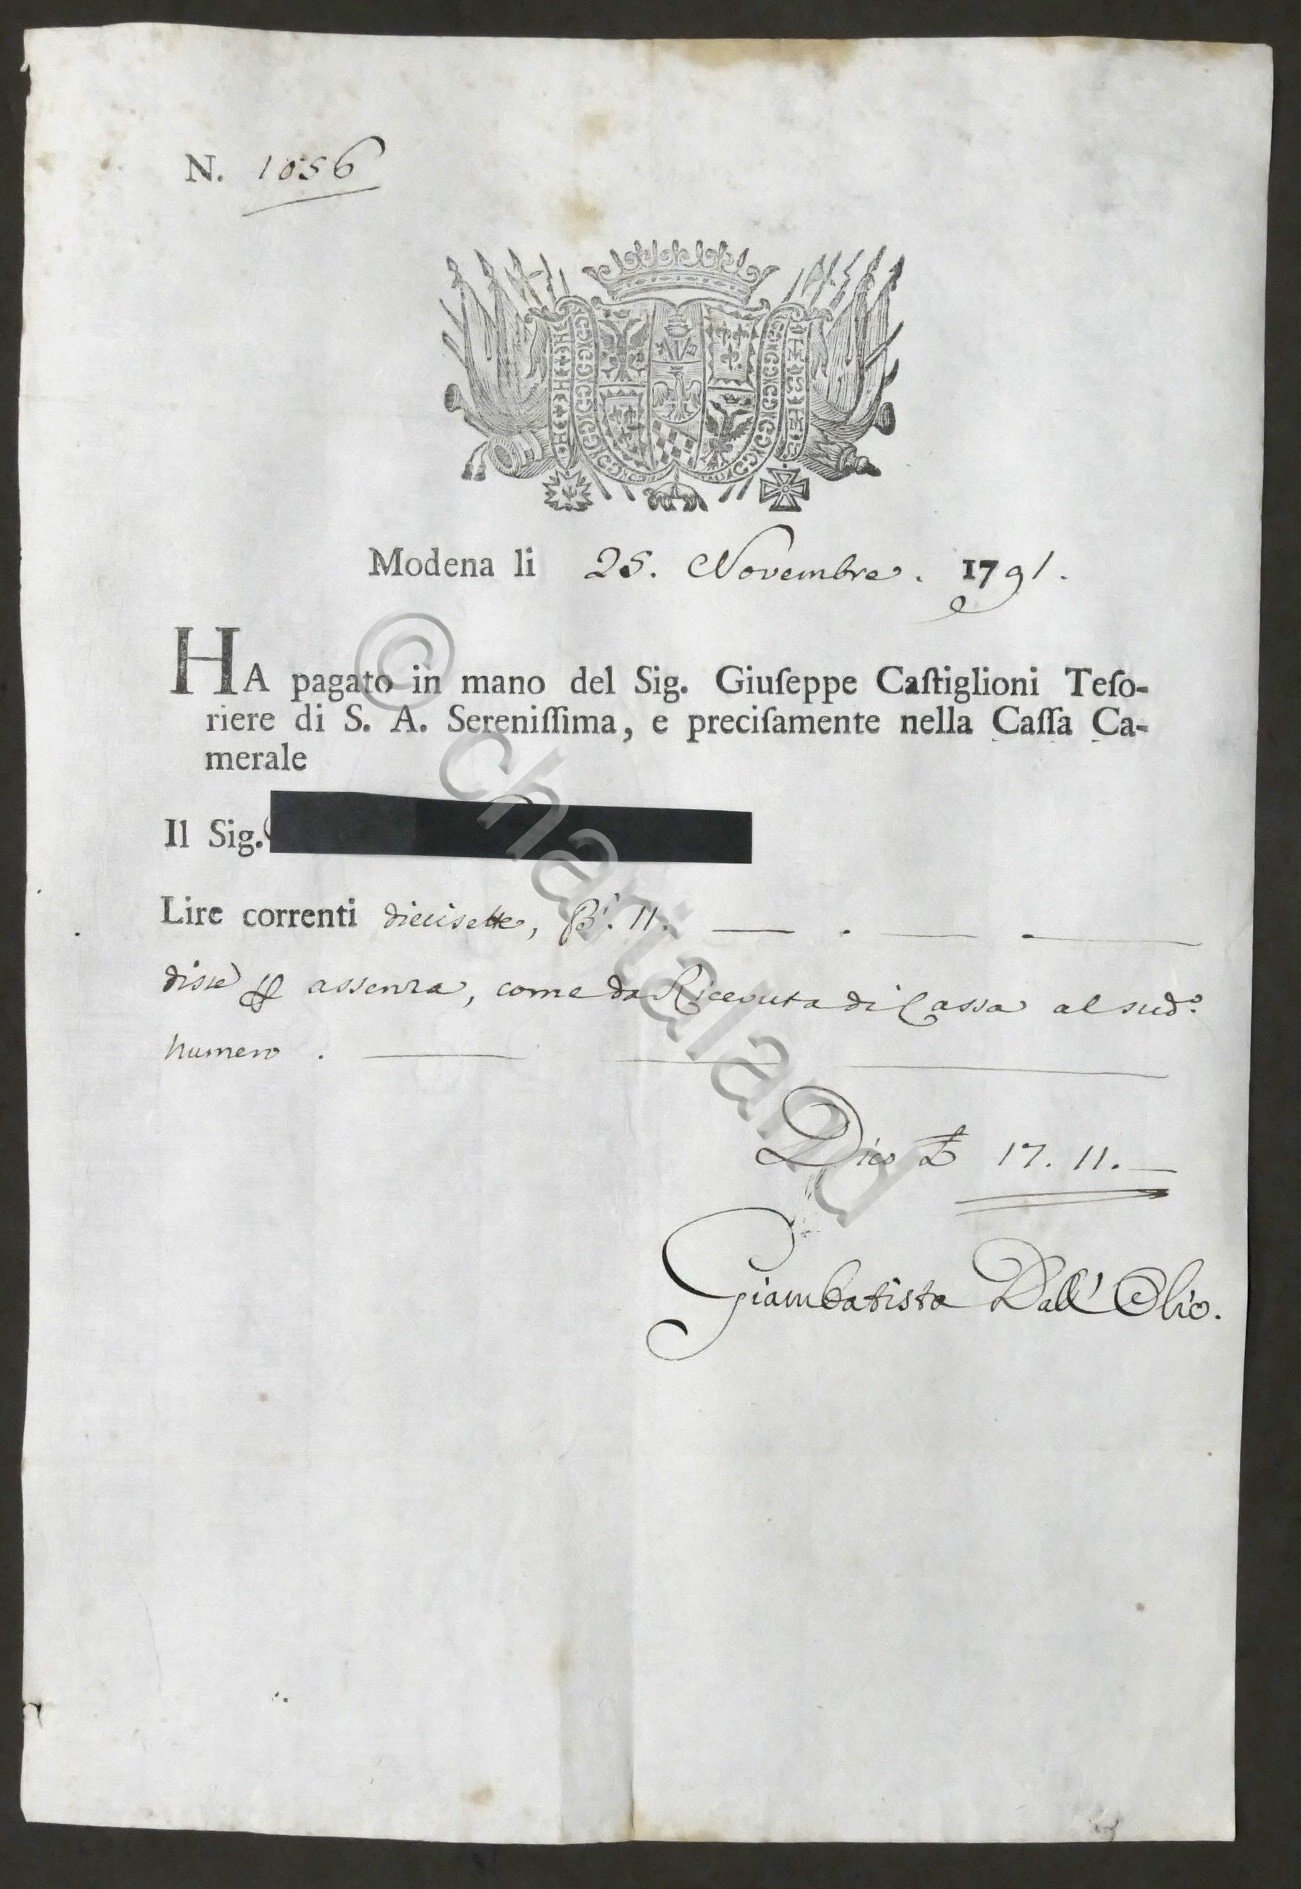 N. 1056
Modena li 25. Novembre. 1791.
HA pagato in mano del Sig. Giuſeppe Caſtiglioni Teſo-
riere di S. A. Sereniſſima, e preciſamente nella Caſſa Ca-
merale
Il Sig.
Lire correnti diecisette, 11.
disse assenza, come da Ricevuta di Cassa al sudº
numero.
Dico £ 17. 11.
Giambatista Dall' Olio.
© chartaland